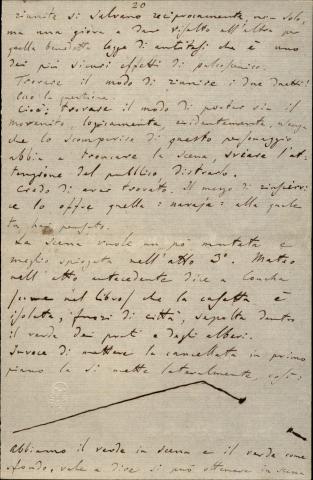 20
rianite si salvano reciprocamente, non solo,
ma una giova a dar risalto all'altra per
quella benedetta legge di antitesi che è uno
dei più sicuri effetti di palcoscenico.
Trovare il modo di rianire i due duetti!
Ecco la questione.
Cioè: trovare il modo di portar via il
morenito, logicamente, evidentemente, senza
che lo scomparire di questo personaggio
abbia a troncare la scena, sviare l'at-
tenzione dal pubblico, distrarlo.
Credo di aver trovato. Il mezzo di
ce lo offre quella: navaja: alla quale
tu hai pensato.
La scena vuole un pò mutata e
meglio spiegata nell'atto 3°. Mateo
nell'atto antecedente dice a Concha
(come nel libro) che la casetta è
isolata, fuori di città, sepolta dentro
il verde dei prati e dagli alberi.
Invece di mettere la cancellata in primo
piano la si mette lateralmente, così:
abbiamo il verde in scena e il verde come
sfondo, vale a dire si può ottenere in scena